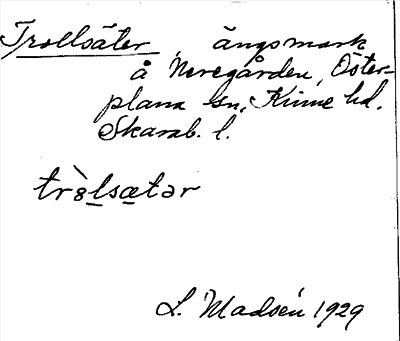 Trollsäter, ängsmark
å Neregården, Öster-
plana sn, Kinne hd.
Skarab. l.
trò̱lsætər
L. Madsén 1929